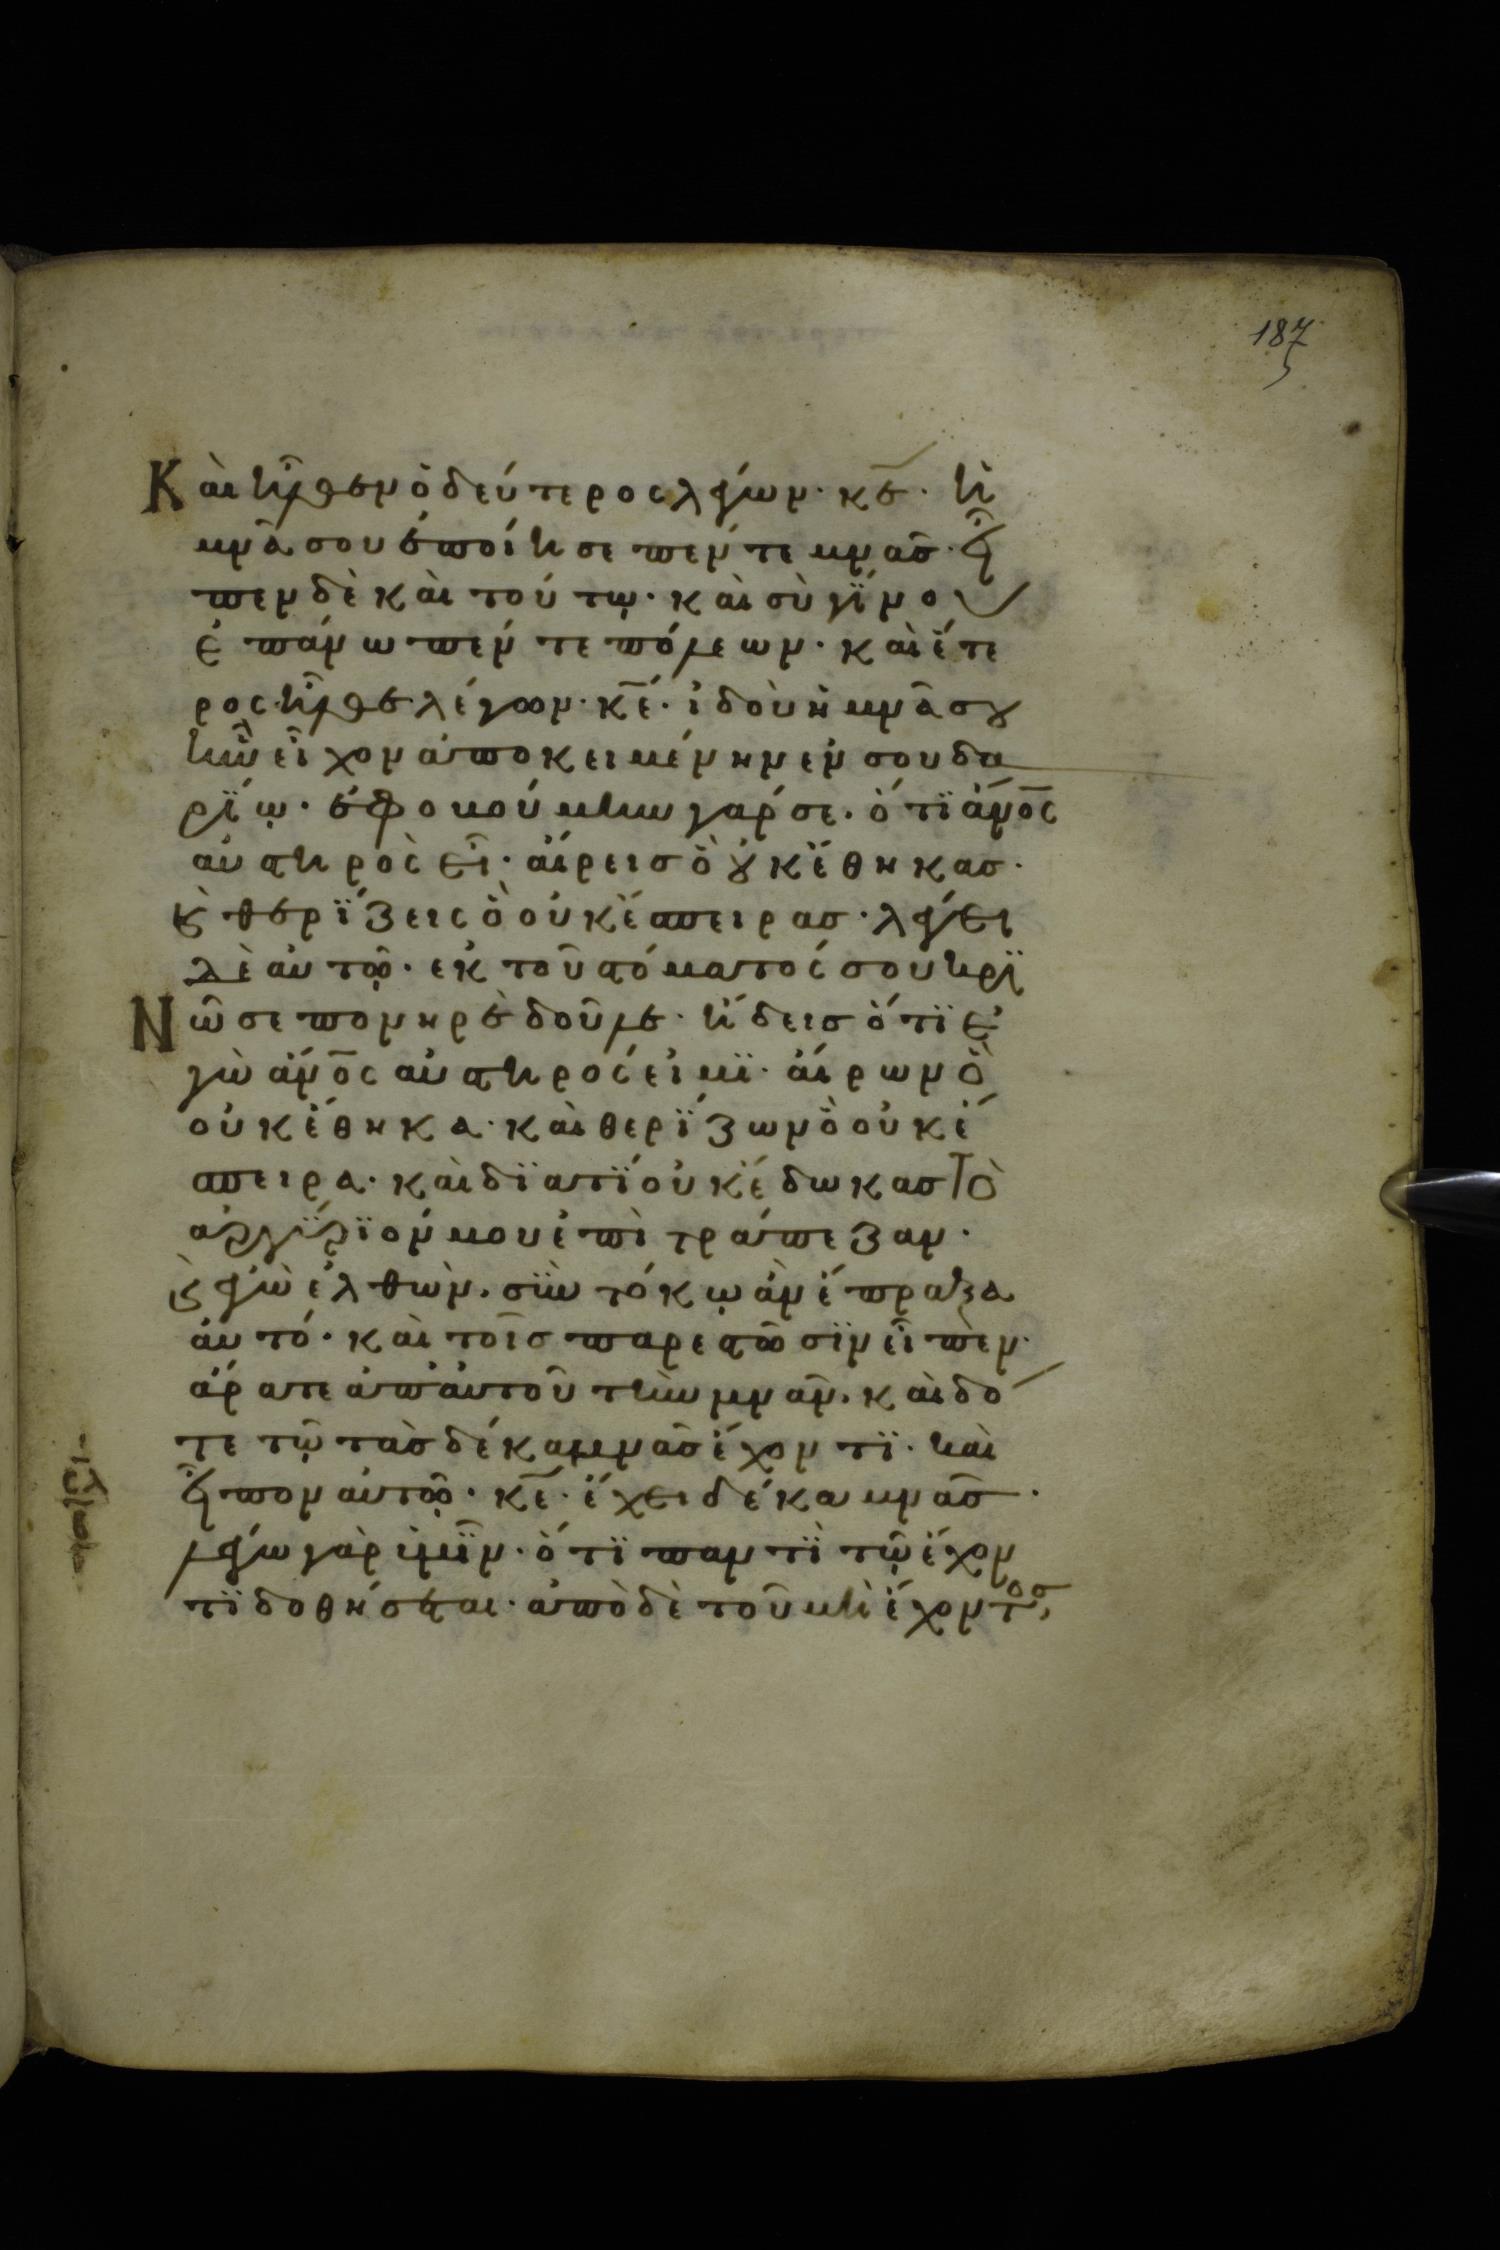 187
Κὰι ἦλθεν ὁ δεύτερος λέγων· κ̅ε̅· ἡ
μνᾶ σου ἐποίησε πέντε μνᾶσ· εἶ
πεν δὲ καὶ τούτῳ· καὶ σὺ γίνου
ἐπάνω πέντε πόλεων· καὶ ἕτε
ρος ἦλθε λέγων· κ̅ε̅· ἰδοὺ ἡ μνᾶ σου
ἣν εἶχον ἀποκειμένην ἐν σουδα
ρίῳ· ἐφοβούμην γάρ σε· ὅτι ἄν̅ο̅ς
αὐστηρὸς εἶ· αἴρεισ ὃ οὐκ ἔθηκασ·
κ̀ θερίζεις ὃ οὐκ ἔσπειρασ· λέγει
δὲ αὐτῷ· εκ τοῦ στόματός σου κρι
Νῶ σε πονηρὲ δοῦλε· ἤδεισ ὅτι ἐ
γὼ ἄν̅ο̅ς αὐστηρός εἰμι· αἴρων ὃ
οὐκ ἔθηκα· καὶ θερίζων ὃ οὐκ ἔ
σπειρα· καὶ διατί οὐκ ἔδωκασ τὸ
αργύριόν μου ἐπὶ τράπεζαν·
κ̀ ἐγὼ ἐλθὼν· σὺν τόκῳ ἀν ἔπραξα
ἀυτό· καὶ τοῖσ παρεστῶσιν εἶπεν·
ἄρατε ἀπ' ἀυτοῦ τὴν μνᾶν· καὶ δό
τε τῷ τὰσ δέκα μνᾶσ ἔχοντι· καὶ
εἶπον ἀυτῷ· κ̅ε̅· ἔχει δέκα μνᾶσ·
λέγω γὰρ ὑμῖν· ὅτι παντὶ τῷ ἔχον
τι δοθήσεται· ἀπὸ δὲ τοῦ μὴ ἔχοντοσ,